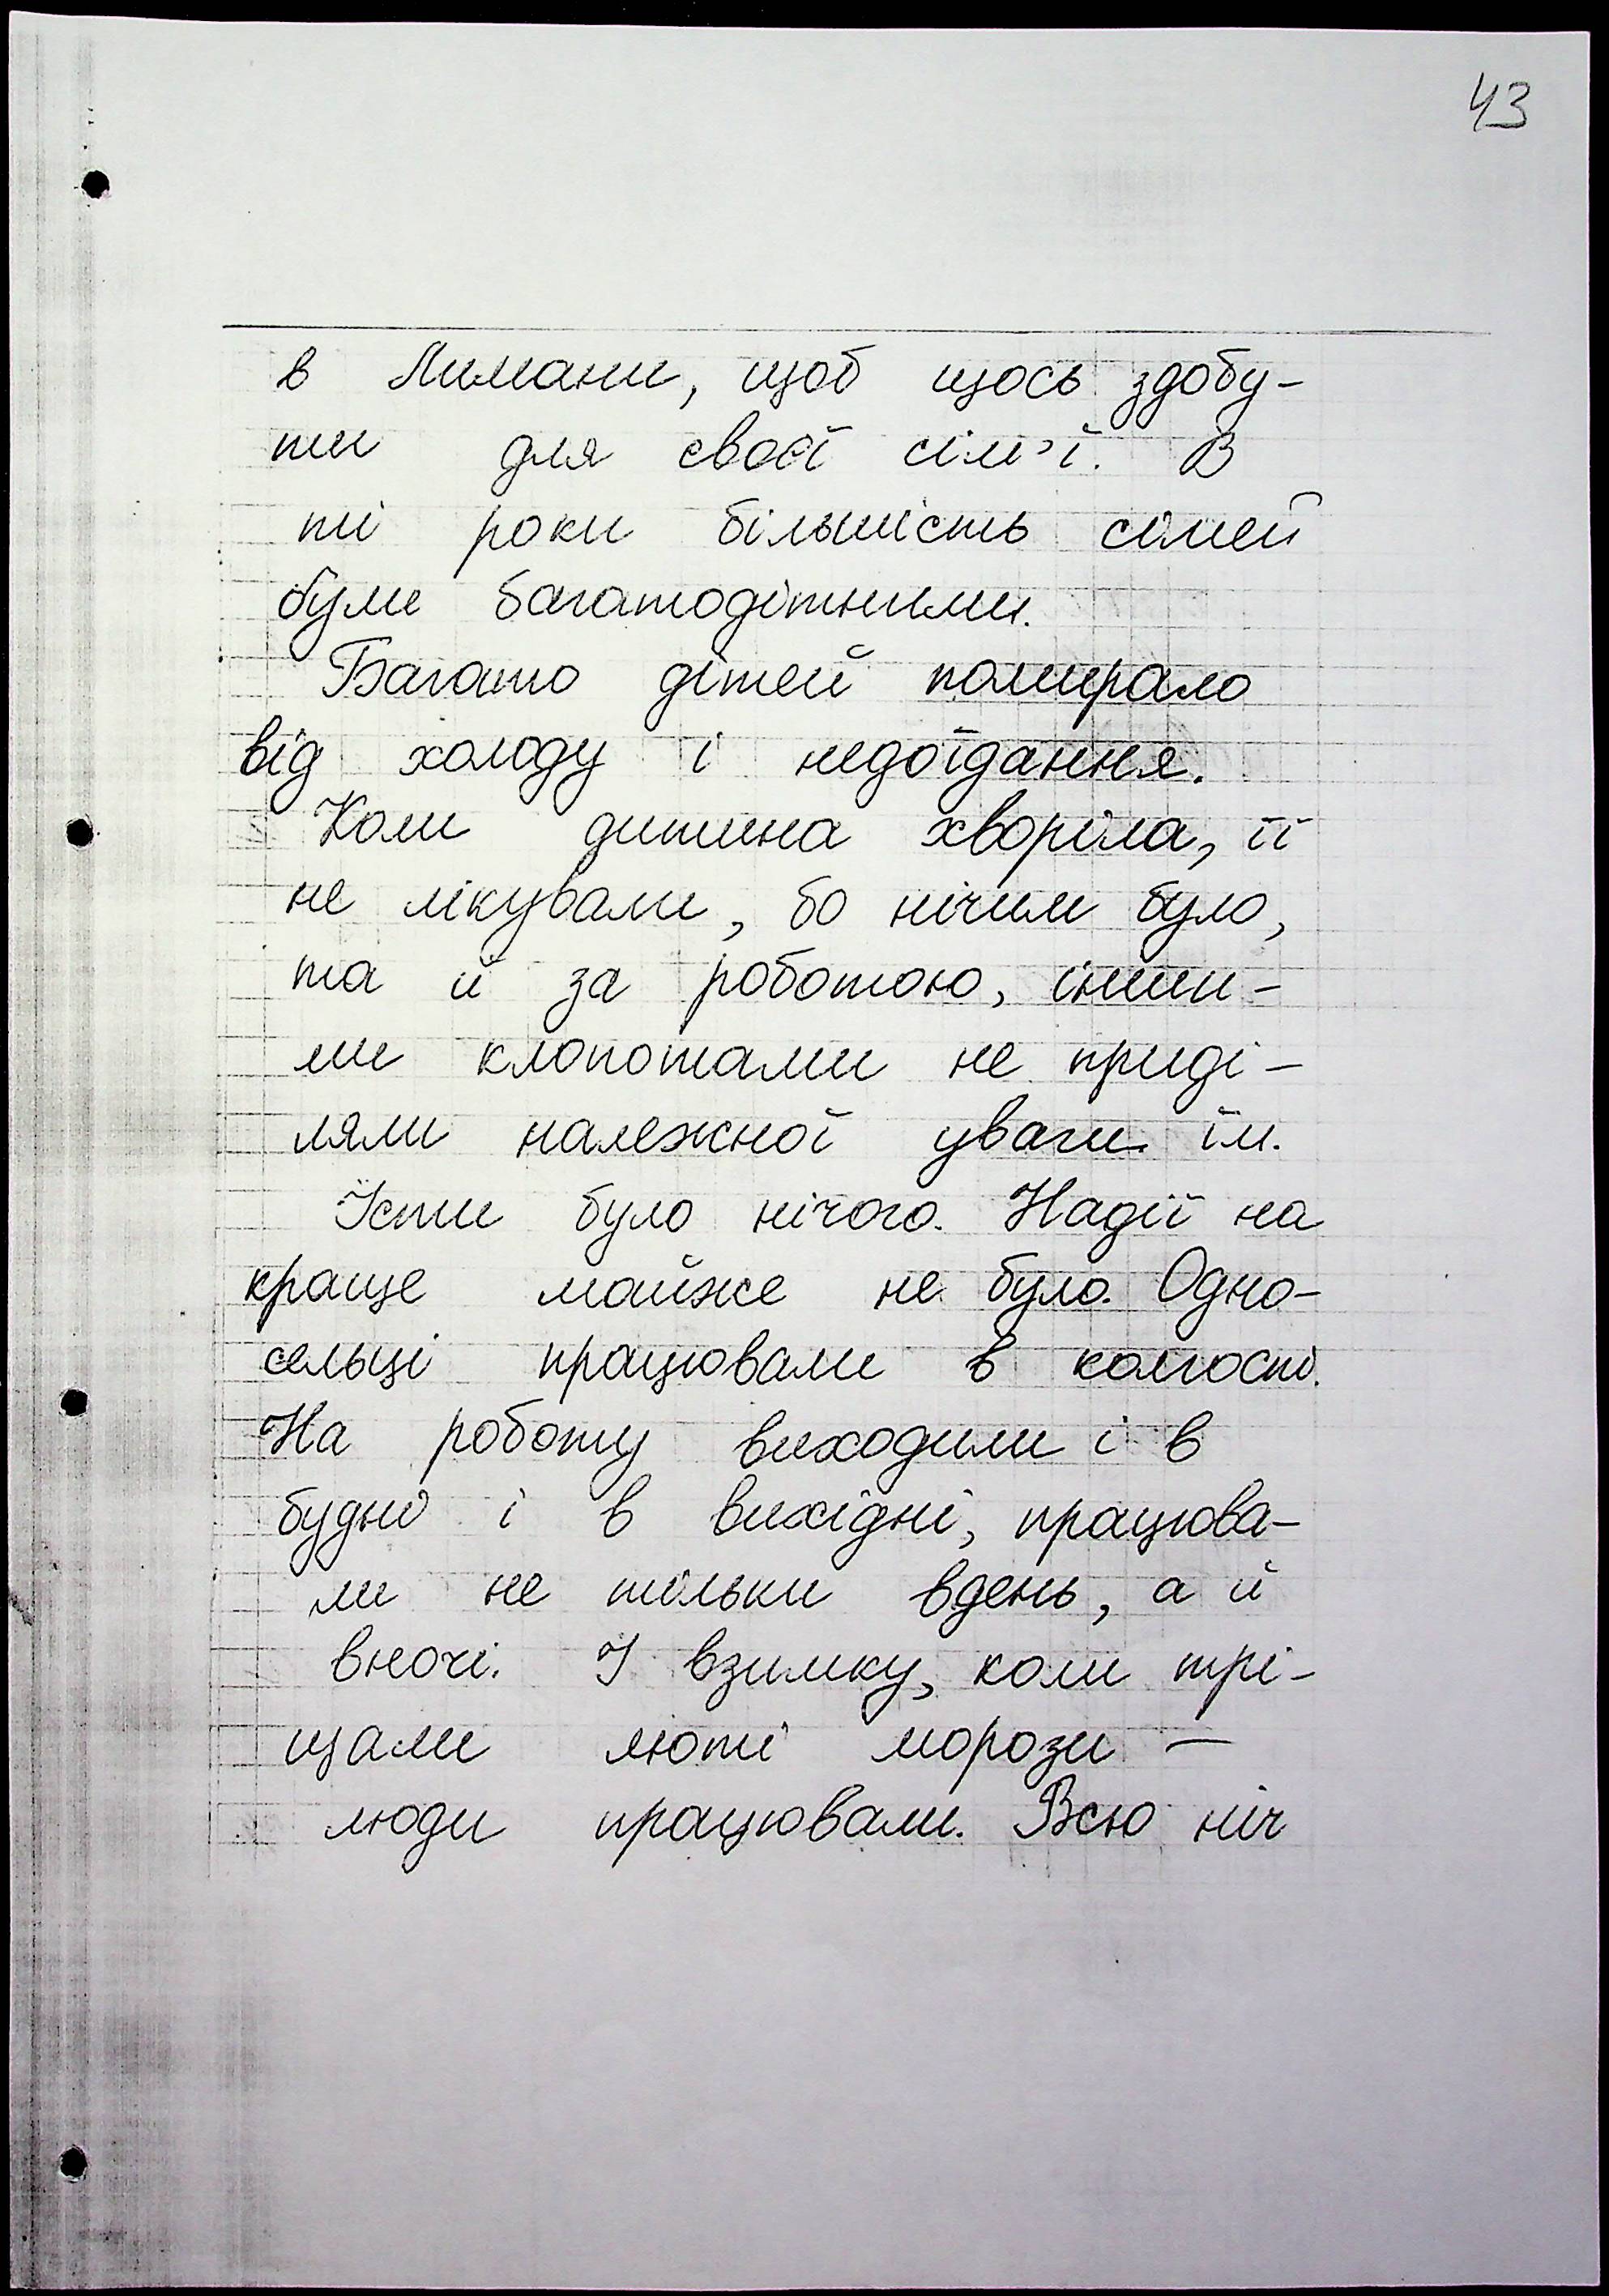 43
в Лимани, щоб щось здобу-
ти для своєї сім'ї. В
ті роки більшість сімей
були багатодітними.
Багато дітей помирало
від холоду і недоїдання.
Коли дитина хворіла, її
не лікували, бо нічим було,
та й за роботою, інши-
ми клопотами не приді-
ляли належної уваги їм.
Їсти було нічого. Надії на
краще майже не було. Одно-
сельці працювали в колгоспі.
На роботу виходили і в
будні і в вихідні, працюва-
ли не тільки вдень, а й
вночі. І взимку, коли трі-
щали люті морози —
люди працювали. Всю ніч